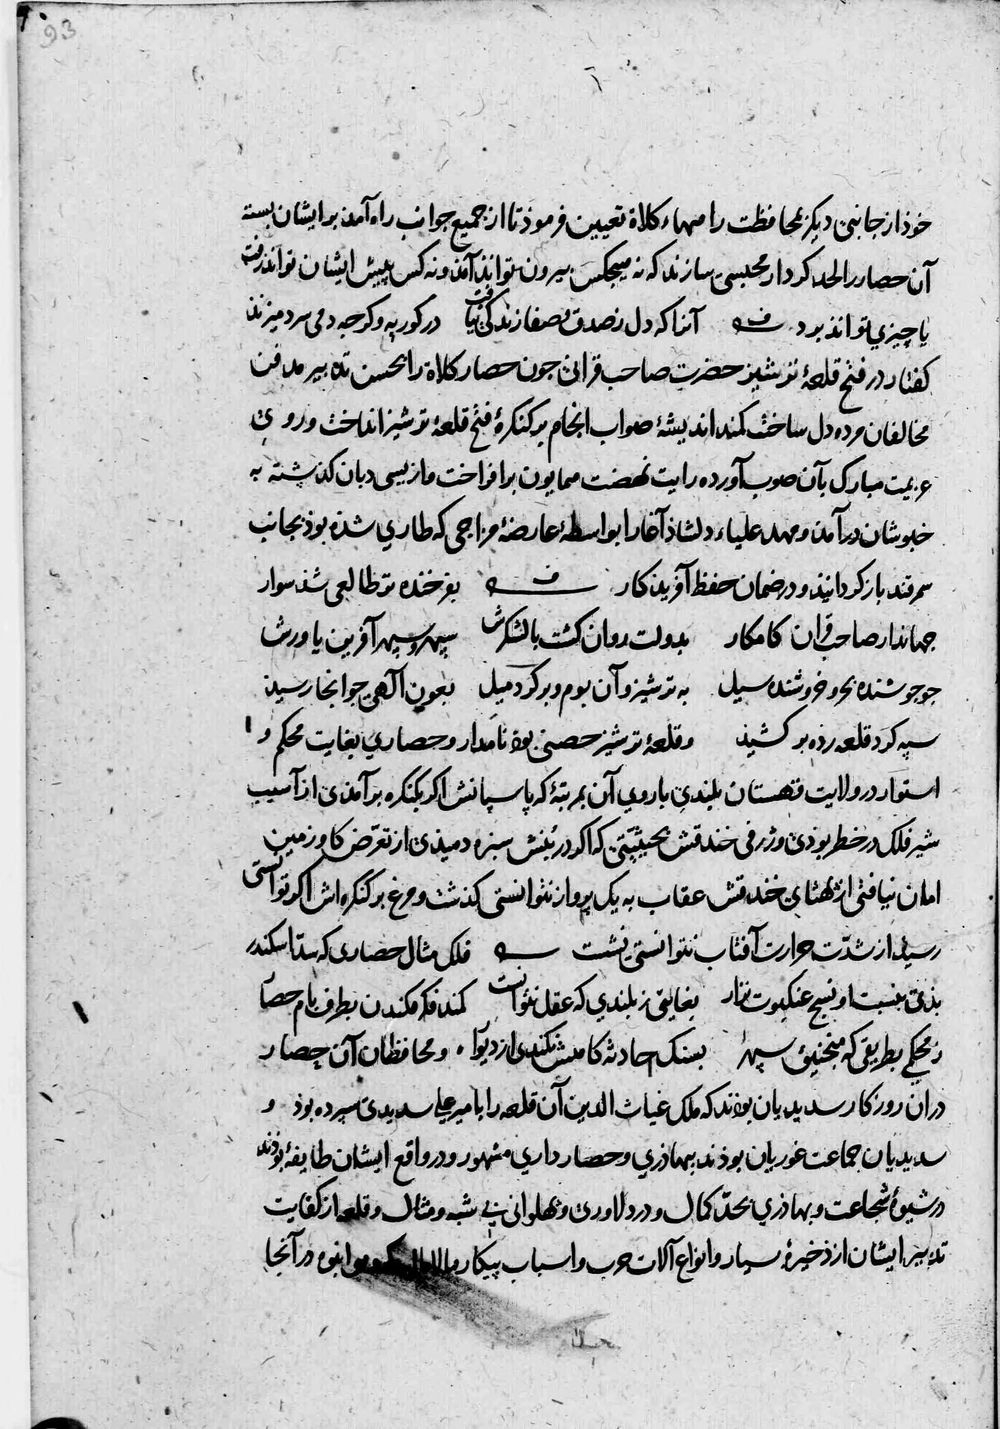 93
خوذ از جانبی دیکر بمحافظت راههاء کلاة تعیین فرموذ تا از جمیع جوانب راه آمدن بر ایشان بسته
آن حصار را لحد کردار محبسی سازند که نه هیجکس بیرون تواند آمد و نه کس پیش ایشان تواند رفت
یا چیزی تواند برد آنرا که دل ز صدق و صفا زندکی نیافت در کور به وکرجه دمی سرد میزند
کفتار در فتح قلعهٔ ترشیز حضرت صاحب قرانی جون حصار کلاة را بحسن تدبیر مدفن
مخالفان مرده دل ساخت کمند اندیشهٔ صواب انجام بر کنکرهٔ فتح قلعهٔ ترشیز انداخت و روی
عزیمت مبارک بآن صوب آورده رایت نهضت همایون برافراخت و از یسی دبان کذشته به
خبوشان درآمد و مهد علیاء دلشاذ آغا را بواسطهٔ عارضهٔ مزاجی که طاری شده بوذ بجانب
سمرقند باز کردانید و در ضمان حفظ آفریدکار بفرخنده تر طالعی شذ سوار
جهاندار صاحب قران کامکار بدولت روان کشت با لشکرش سپهر و سپهر آفرین یاورش
جو جوشنده بحر و خروشنده سیل به ترشیز و آن بوم و بر کرد میل بعون الهی جو آنجا رسید
سپه کرد قلعه رده بر کشید و قلعهٔ ترشیز حصنی بوذ نامدار و حصاری بغایت محکم و
استوار در ولایت قهستان بلندی باروی آن بمرتبهٔ که پاسبانش اکر بکنکره برآمدی از آسیب
شیر فلک در خطر بوذی و ژرفی خندقش بحیثیتی که اکر در بنش سبزه دمیذی از تعرض کاو زمین
امان نیافتی از پهنای خندقش عقاب به یک پرواز نتوانستی کذشت و مرغ بر کنکره اش اکر توانستی
رسید از شدت حرارت آفتاب نتوانستی نشست فلک مثال حصاری که سد اسکندر
بذی بنسبت او نسج عنکبوت نزار بغایتی ز بلندی که عقل نتوانست کمند فکر فکندن بطرف بام حصار
ز محکمی بطریقی که منجنیق سپهر بسنک حادثه کاهش نکندی از دیوار و محافظان آن حصار
دران روزکار سدیدیان بوذند که ملک غیاث الدین آن قلعه را بامیر علی سدیدی سپرده بوذ و
سدیدیان جماعت غوریان بوذند ببهاذری و حصارداری مشهور و در واقع ایشان طایفهٔ بوذند
در شیوهٔ شجاعت و بهاذری بحد کمال و در دلاوری و پهلوانی بی شبه و مثال و قلعه از کفایت
تدبیر ایشان از ذخیرهٔ بسیار و انواع آلات حرب و اسباب پیکار مالامال انبوه در آنجا